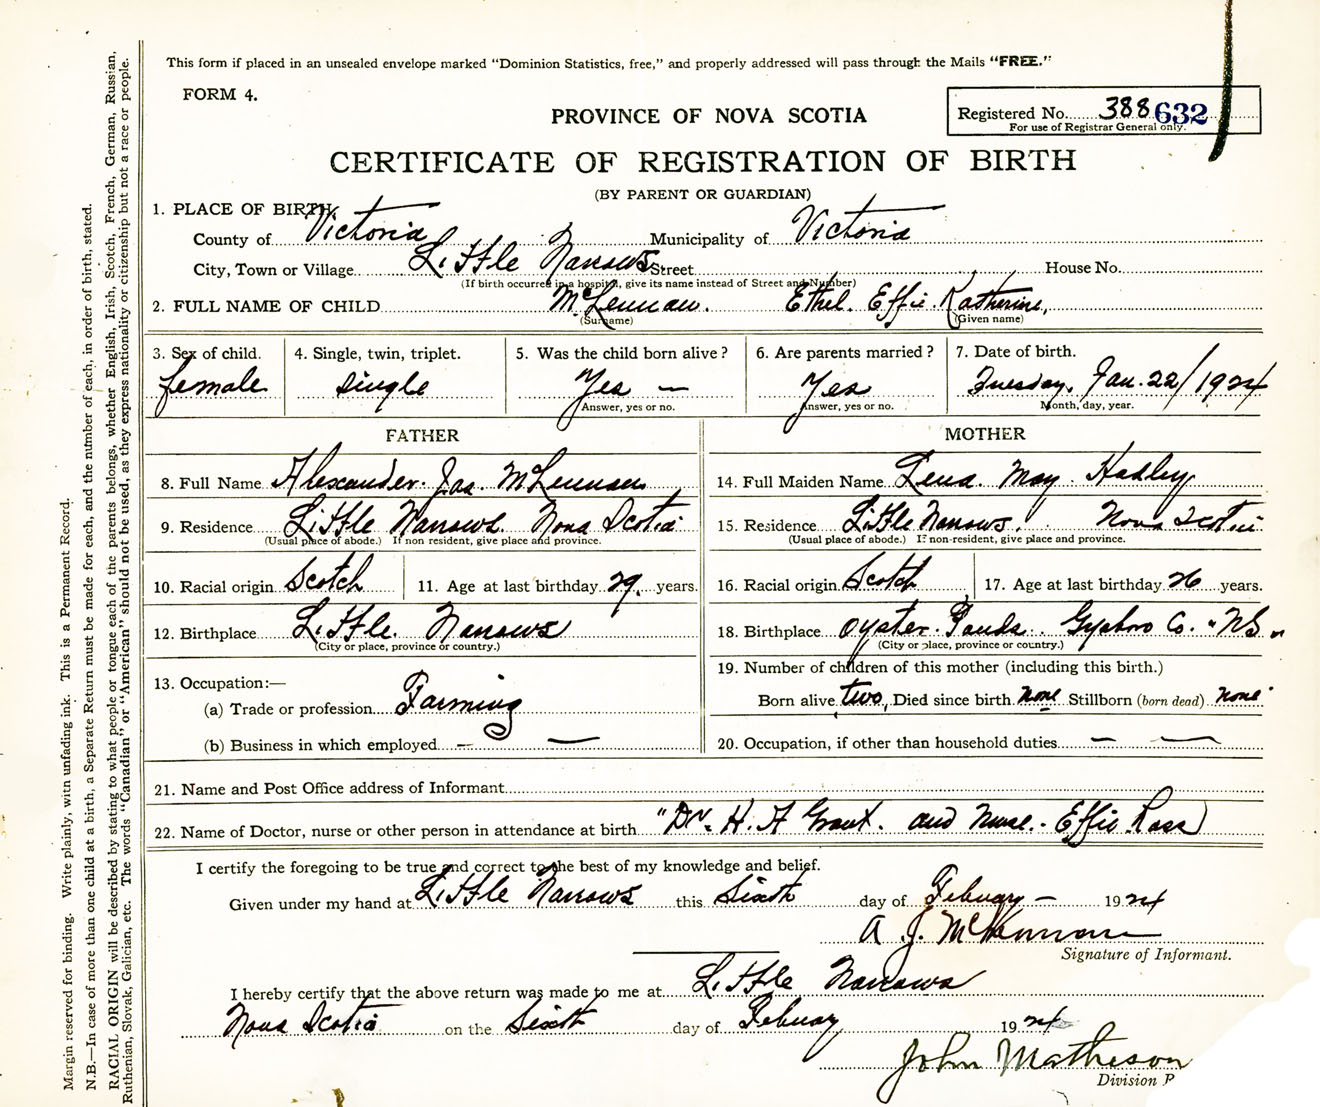 This form if placed in an unsealed envelope marked "Dominion Statistics, free," and properly addressed will pass through the Mails "FREE."
FORM 4.
PROVINCE OF NOVA SCOTIA
Registered No. 388 632
For use of Registrar General only.
CERTIFICATE OF REGISTRATION OF BIRTH
(BY PARENT OR GUARDIAN)
1. PLACE OF BIRTH
County of Victoria Municipality of Victoria
City, Town or Village Little Narrows Street House No.
(If birth occurred in a hospital, give its name instead of Street and Number)
2. FULL NAME OF CHILD McLennan. Ethel. Effie. Katherine,
(Surname) (Given name)
3. Sex of child. 4. Single, twin, triplet. 5. Was the child born alive? 6. Are parents married? 7. Date of birth.
female single Yes — Yes Tuesday, Jan. 22/1924
Answer, yes or no. Answer, yes or no. Month, day, year.
FATHER
8. Full Name Alexander. Jas. McLennan
9. Residence Little Narrows Nova Scotia
(Usual place of abode.) If non resident, give place and province.
10. Racial origin Scotch 11. Age at last birthday 29, years.
12. Birthplace Little. Narrows
(City or place, province or country.)
13. Occupation:—
(a) Trade or profession Farming
(b) Business in which employed — —
MOTHER
14. Full Maiden Name Lena. May. Hadley
15. Residence Little Narrows, Nova Scotia
(Usual place of abode.) If non-resident, give place and province.
16. Racial origin Scotch 17. Age at last birthday 26 years.
18. Birthplace Oyster. Ponds. Gysboro Co. "NS"
(City or place, province or country.)
19. Number of children of this mother (including this birth.)
Born alive two, Died since birth none Stillborn (born dead) none
20. Occupation, if other than household duties — —
21. Name and Post Office address of Informant
22. Name of Doctor, nurse or other person in attendance at birth "Dr. H. A Grant. and Nurse. Effie Ross
I certify the foregoing to be true and correct to the best of my knowledge and belief.
Given under my hand at Little Narrows this Sixth day of Febuary — 1924
A. J. McLennan
Signature of Informant.
I hereby certify that the above return was made to me at Little Narrows
Nova Scotia on the Sixth day of Febuary 1924
John Matheson
Division
Margin reserved for binding. Write plainly, with unfading ink. This is a Permanent Record.
N.B.—In case of more than one child at a birth, a Separate Return must be made for each, and the number of each, in order of birth, stated.
RACIAL ORIGIN will be described by stating to what people or tongue each of the parents belongs, whether English, Irish, Scotch, French, German, Russian,
Ruthenian, Slovak, Galician, etc. The words "Canadian" or "American" should not be used, as they express nationality or citizenship but not a race or people.